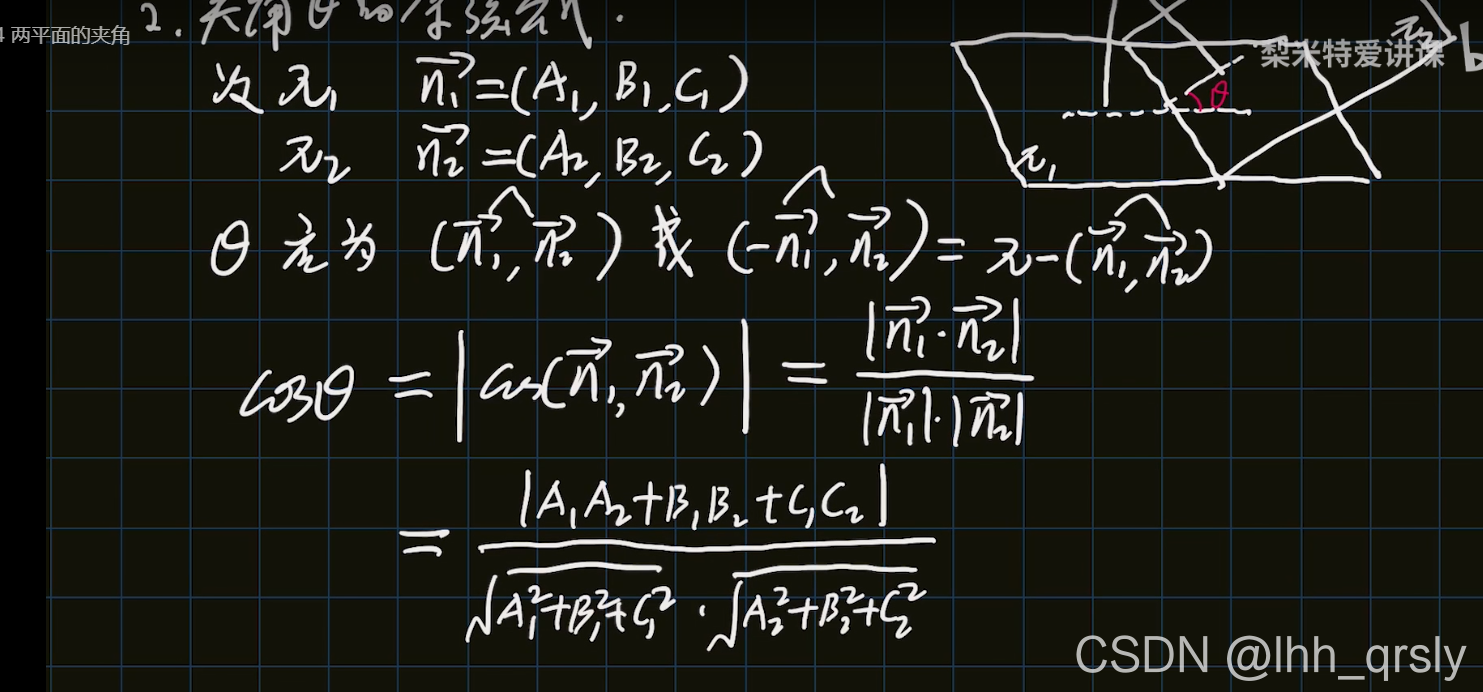 4 两平面的夹角
2. 夹角θ的余弦公式.
梨米特爱讲课
b
π₂
θ
π₁
设 π₁ n₁⃗=(A₁, B₁, C₁)
π₂ n₂⃗=(A₂, B₂, C₂)
θ应为 (n₁⃗^,n₂⃗) 或 (-n₁⃗^,n₂⃗) = π-(n₁⃗^,n₂⃗)
cosθ = |cos(n₁⃗,n₂⃗)| = |n₁⃗·n₂⃗| / |n₁⃗|·|n₂⃗|
= |A₁A₂+B₁B₂+C₁C₂| / √(A₁²+B₁²+C₁²) · √(A₂²+B₂²+C₂²)
CSDN @lhh_qrsly